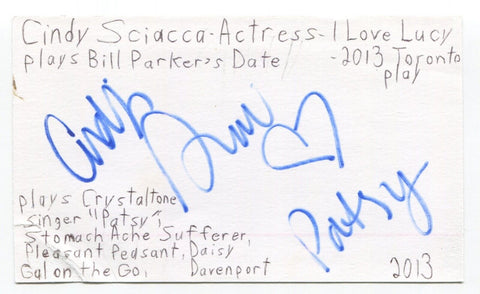 Cindy Sciacca-Actress-I Love Lucy
plays Bill Parker's Date -2013 Toronto
play
Cindy
Patsy
plays Crystaltone
singer "Patsy",
Stomach Ache Sufferer,
Pleasant Peasant, Daisy
Gal on the Go, Davenport
2013